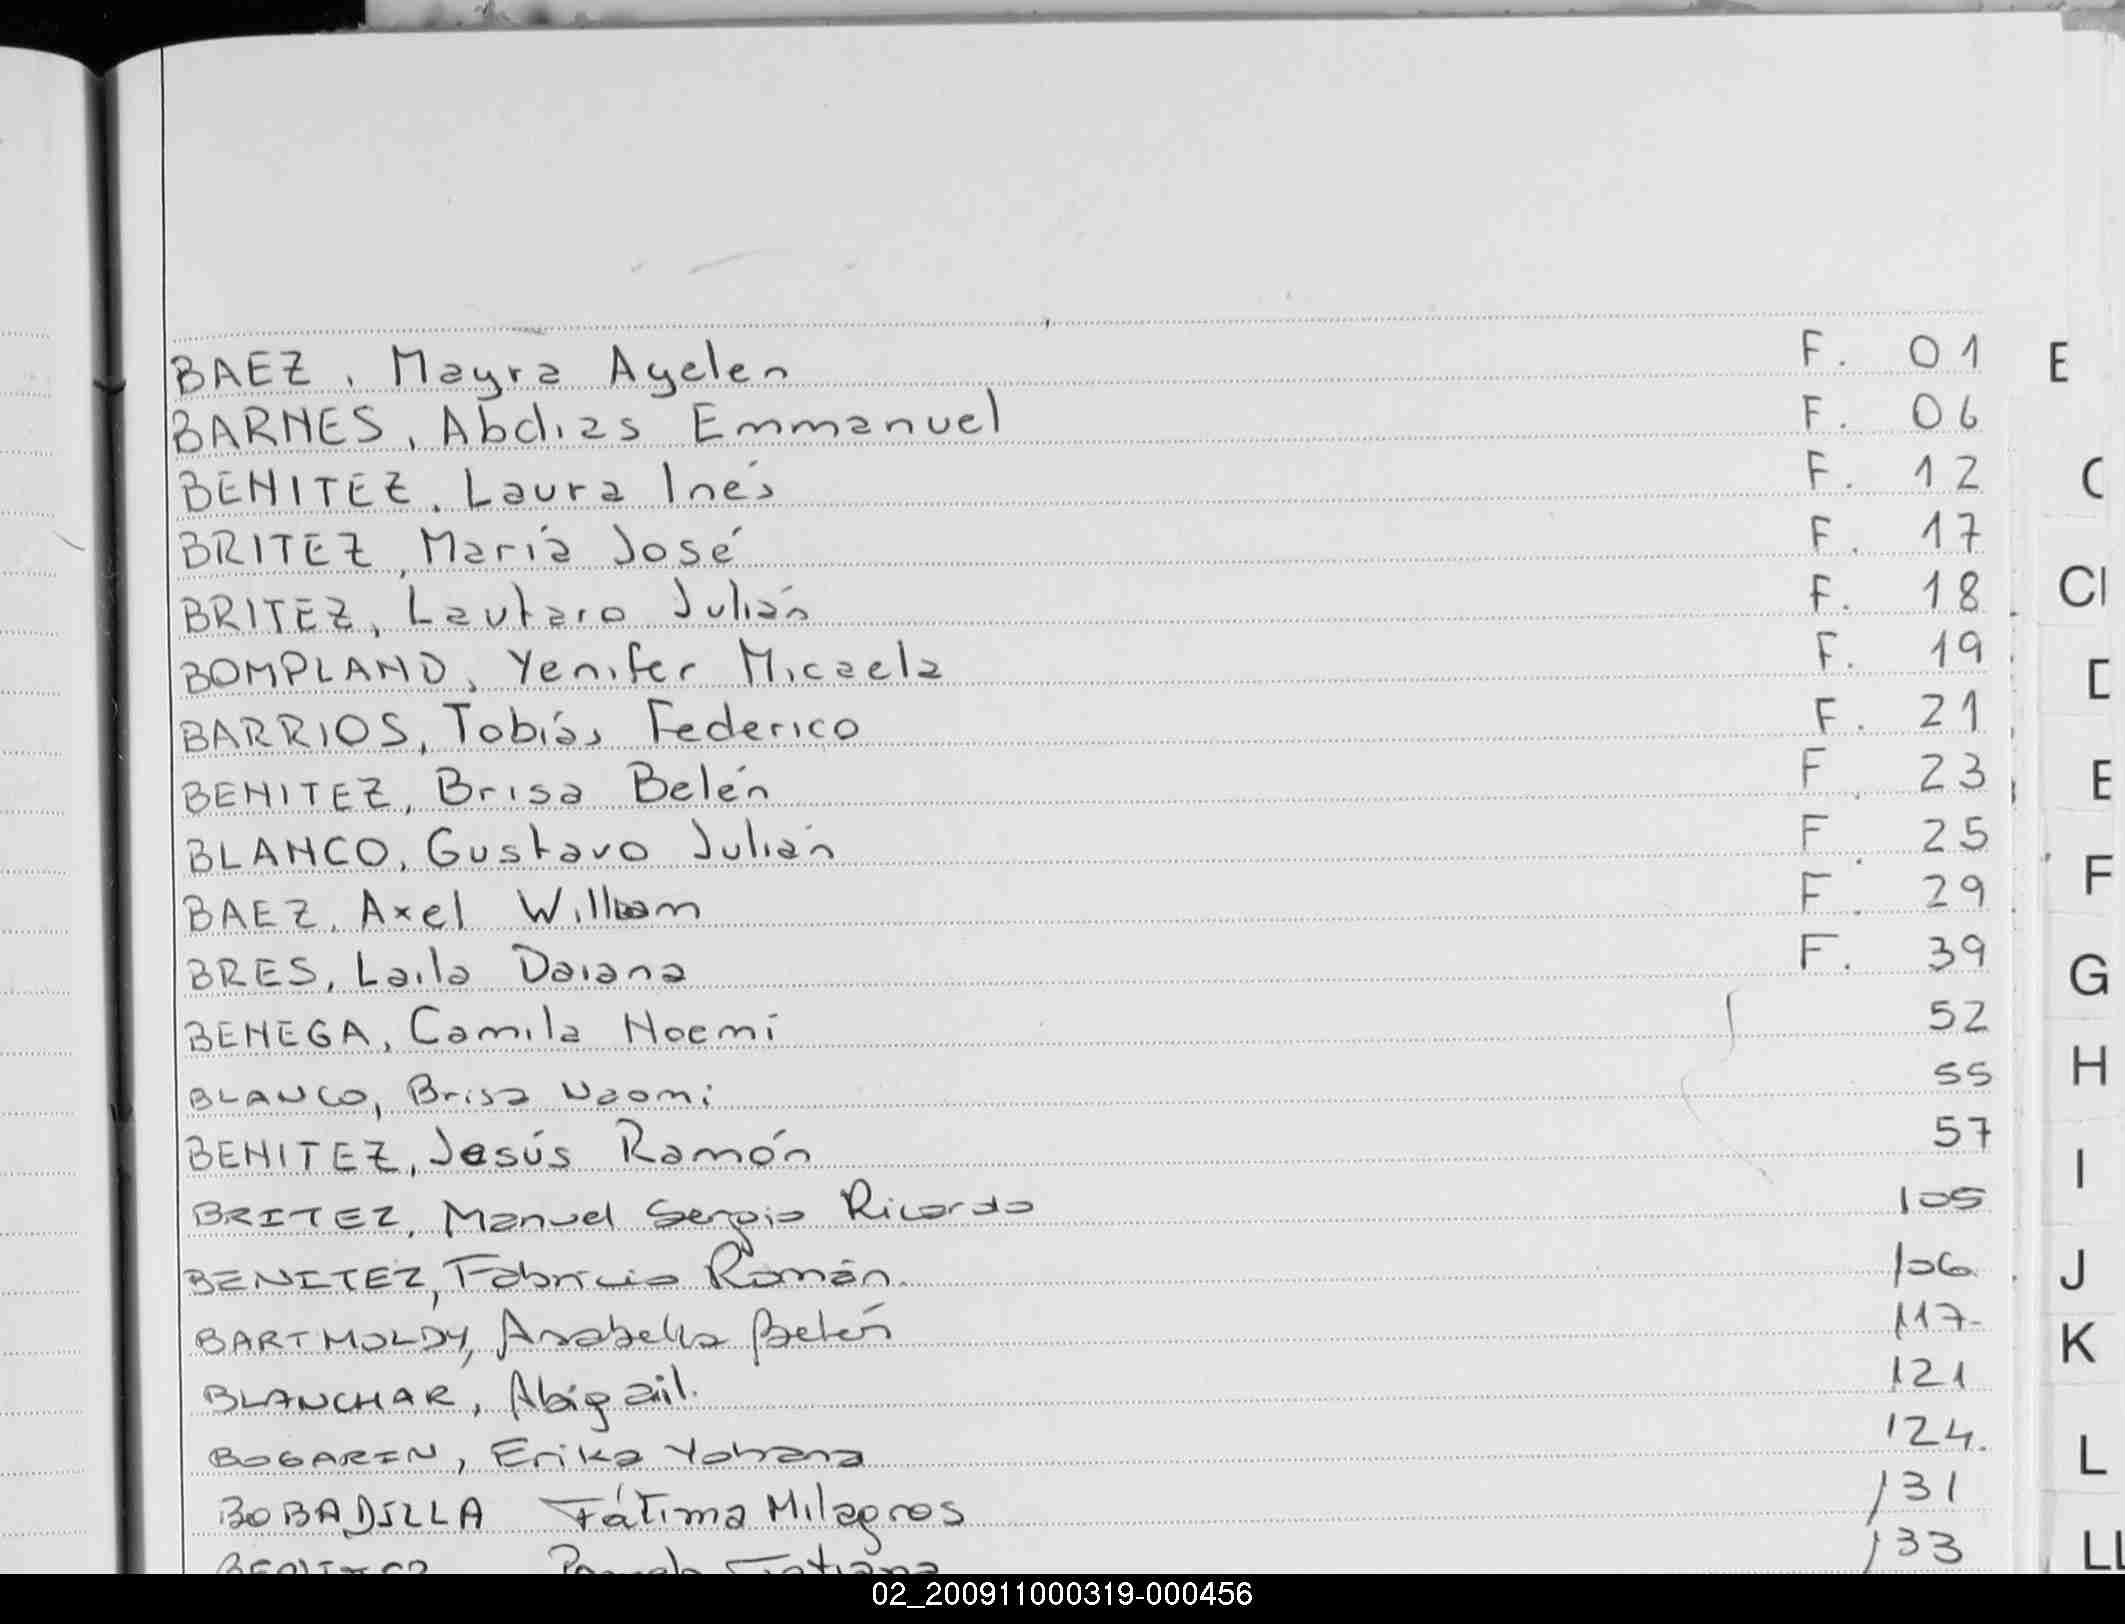 BAEZ, Mayra Ayelen F. 01
BARNES, Abdias Emmanuel F. 06
BENITEZ, Laura Inés F. 12
BRITEZ, María José F. 17
BRITEZ, Lautaro Julián F. 18
BOMPLAND, Yenifer Micaela F. 19
BARRIOS, Tobiás Federico F. 21
BENITEZ, Brisa Belén F. 23
BLANCO, Gustavo Julián F. 25
BAEZ, Axel William F. 29
BRES, Laila Daiana F. 39
BENEGA, Camila Noemí 52
BLANCO, Brisa Naomi 55
BENITEZ, Jesús Ramón 57
BRITEZ, Manuel Sergio Ricardo 105
BENITEZ, Fabricio Román. 106
BARTHOLDY, Anabella Belén 117-
BLANCHAR, Abigail. 121
BOGARIN, Erika Yohana 124.
BOBADILLA Fátima Milagros 131
Tatiana 133
E
C
D
E
F
G
H
I
J
K
L
LL
02_200911000319-000456